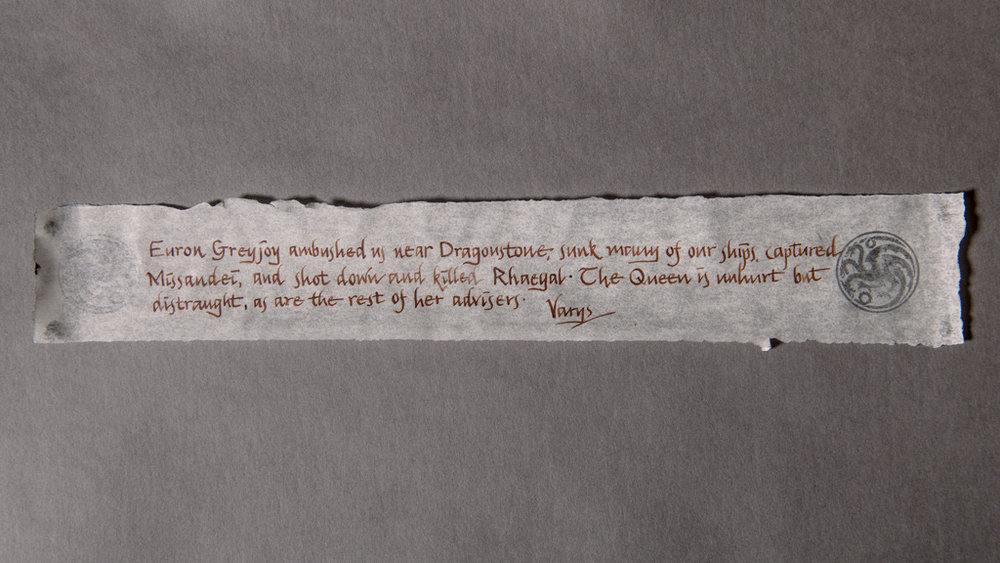 Euron Greyjoy ambushed us near Dragonstone, sunk many of our ships, captured
Missandei, and shot down and killed Rhaegal. The Queen is unhurt but
distraught, as are the rest of her advisers.
Varys